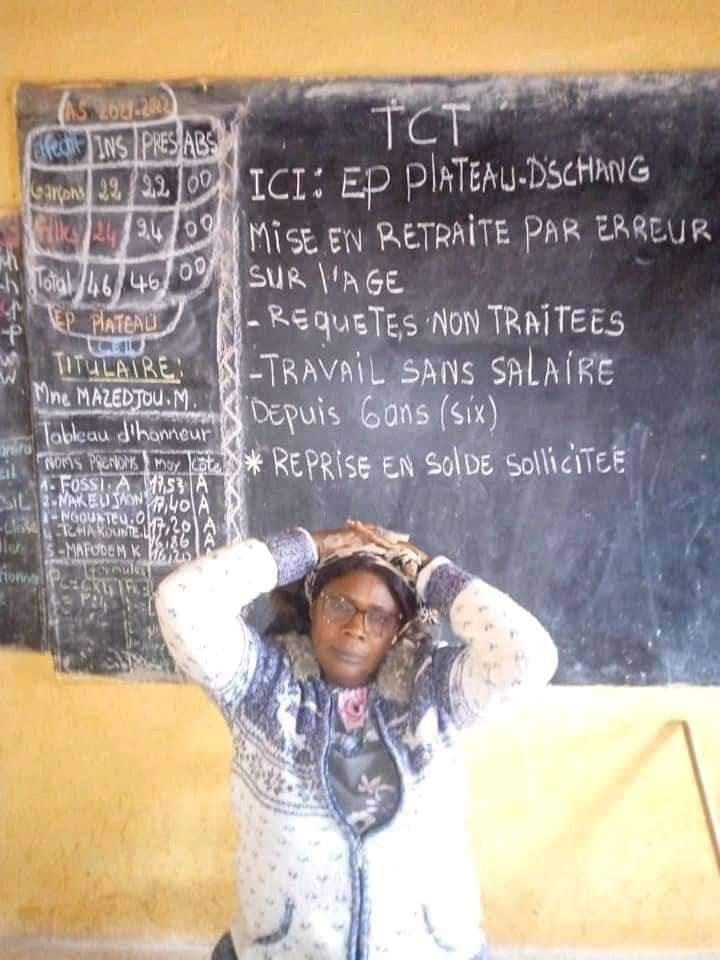 AS 2021-2022
Effectif INS PRES ABS
Garçons 22 22 00
Filles 24 24 00
Total 46 46 00
EP PLATEAU
TITULAIRE:
Mme MAZEDJOU.M.
Tableau d'honneur
NOMS PRENOMS moy Côte
1- FOSSI. A 17,53 A
2- MAKEUJAON 17,40 A
3- NGOUATEU.O 17,20 A
TCHAKOUNTE.L A
5- MAFODEM K 16,20
formules
TCT
ICI: EP PLATEAU-DSCHANG
MISE EN RETRAITE PAR ERREUR
SUR L'AGE
- REQUETES NON TRAITEES
-TRAVAIL SANS SALAIRE
DEPUIS 6ans (six)
* REPRISE EN SOLDE SOLLICITEE